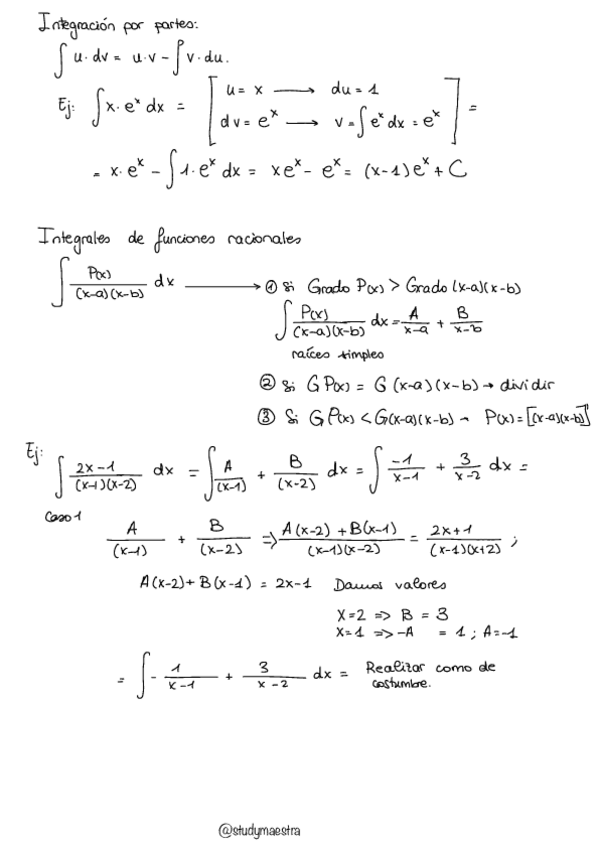 Integración por partes:
∫ u·dv = u·v - ∫ v·du.
Ej: ∫ x·eˣ dx = [ u = x → du = 1
dv = eˣ → v = ∫ eˣ dx = eˣ ] =
= x·eˣ - ∫ 1·eˣ dx = xeˣ - eˣ = (x-1)eˣ + C
Integrales de funciones racionales
∫ P(x)/(x-a)(x-b) dx → ① Si Grado P(x) > Grado (x-a)(x-b)
∫ P(x)/(x-a)(x-b) dx = A/x-a + B/x-b
raíces simples
② Si G P(x) = G (x-a)(x-b) → dividir
③ Si G P(x) < G(x-a)(x-b) → P(x) = [(x-a)(x-b)]
Ej: ∫ 2x-1/(x-1)(x-2) dx = ∫ A/(x-1) + B/(x-2) dx = ∫ -1/x-1 + 3/x-2 dx =
Caso 1
A/(x-1) + B/(x-2) => A(x-2)+B(x-1)/(x-1)(x-2) = 2x+1/(x-1)(x+2) ;
A(x-2)+B(x-1) = 2x-1 Damos valores
X=2 => B = 3
X=1 => -A = 1 ; A=-1
= ∫ - 1/x-1 + 3/x-2 dx = Realizar como de
costumbre.
@studymaestra